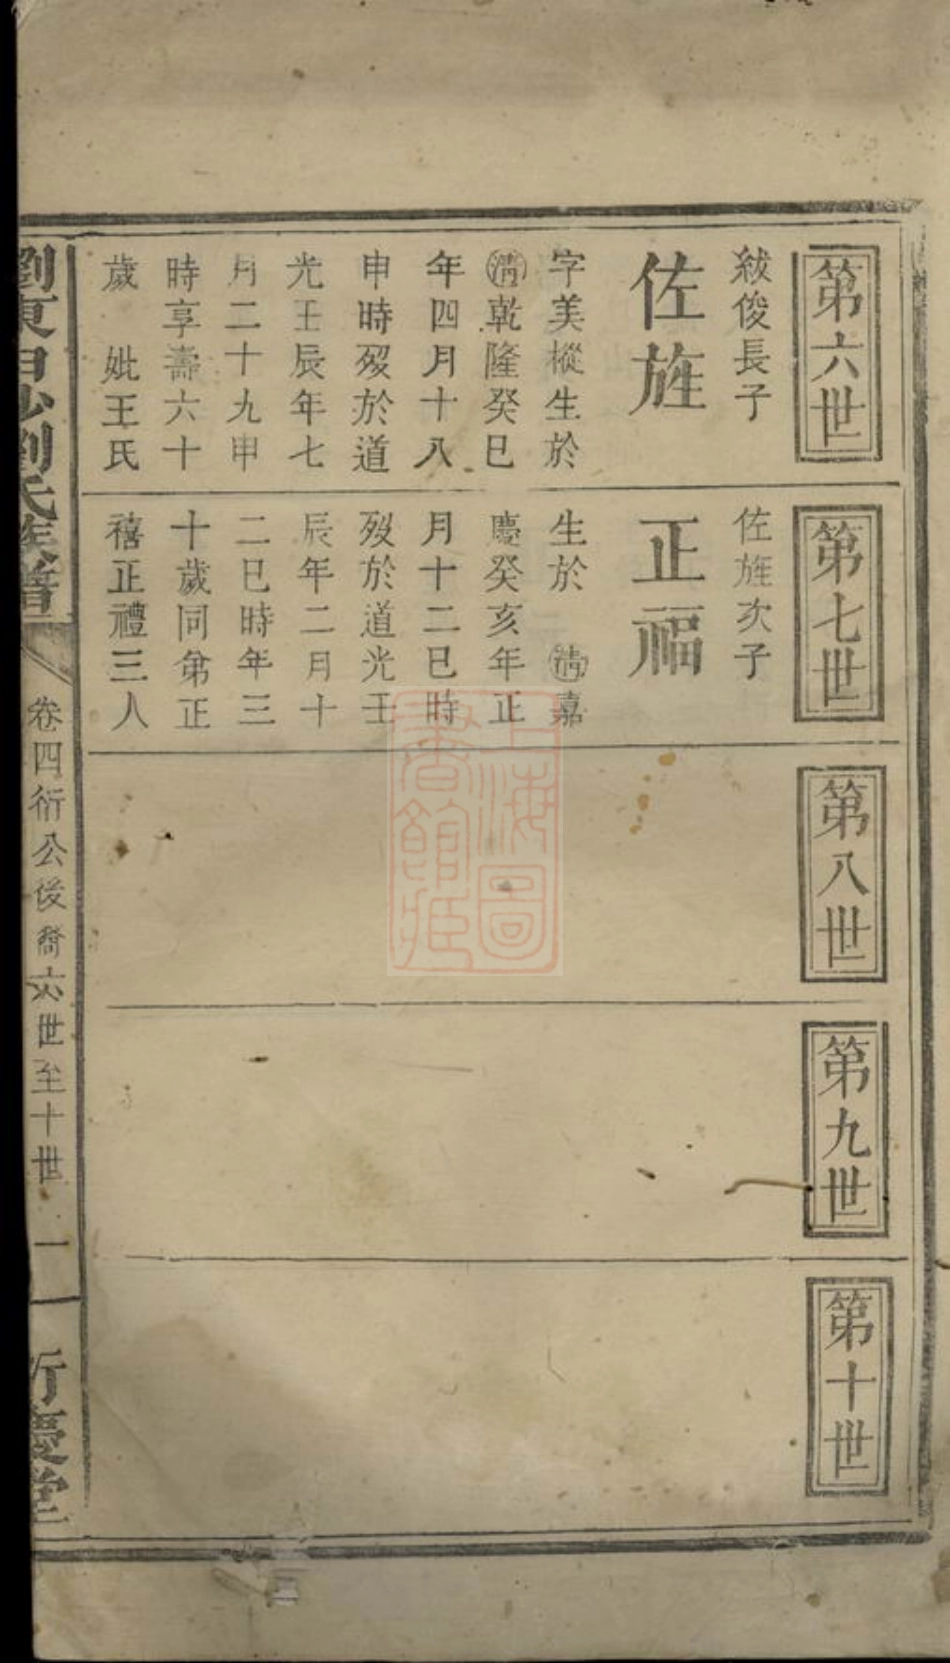 第六世
紱俊長子
佐旌
字美樅生於
清乾隆癸巳
年四月十八
申時歿於道
光壬辰年七
月二十九申
時享壽六十
歲　妣王氏
第七世
佐旌次子
正福
生於　清嘉
慶癸亥年正
月十二巳時
歿於道光壬
辰年二月十
二巳時年三
十歲同弟正
禧正禮三人
第八世
第九世
第十世
瀏東白沙劉氏族譜
卷四衍公後裔六世至十世
一
慶堂
上海圖書館藏